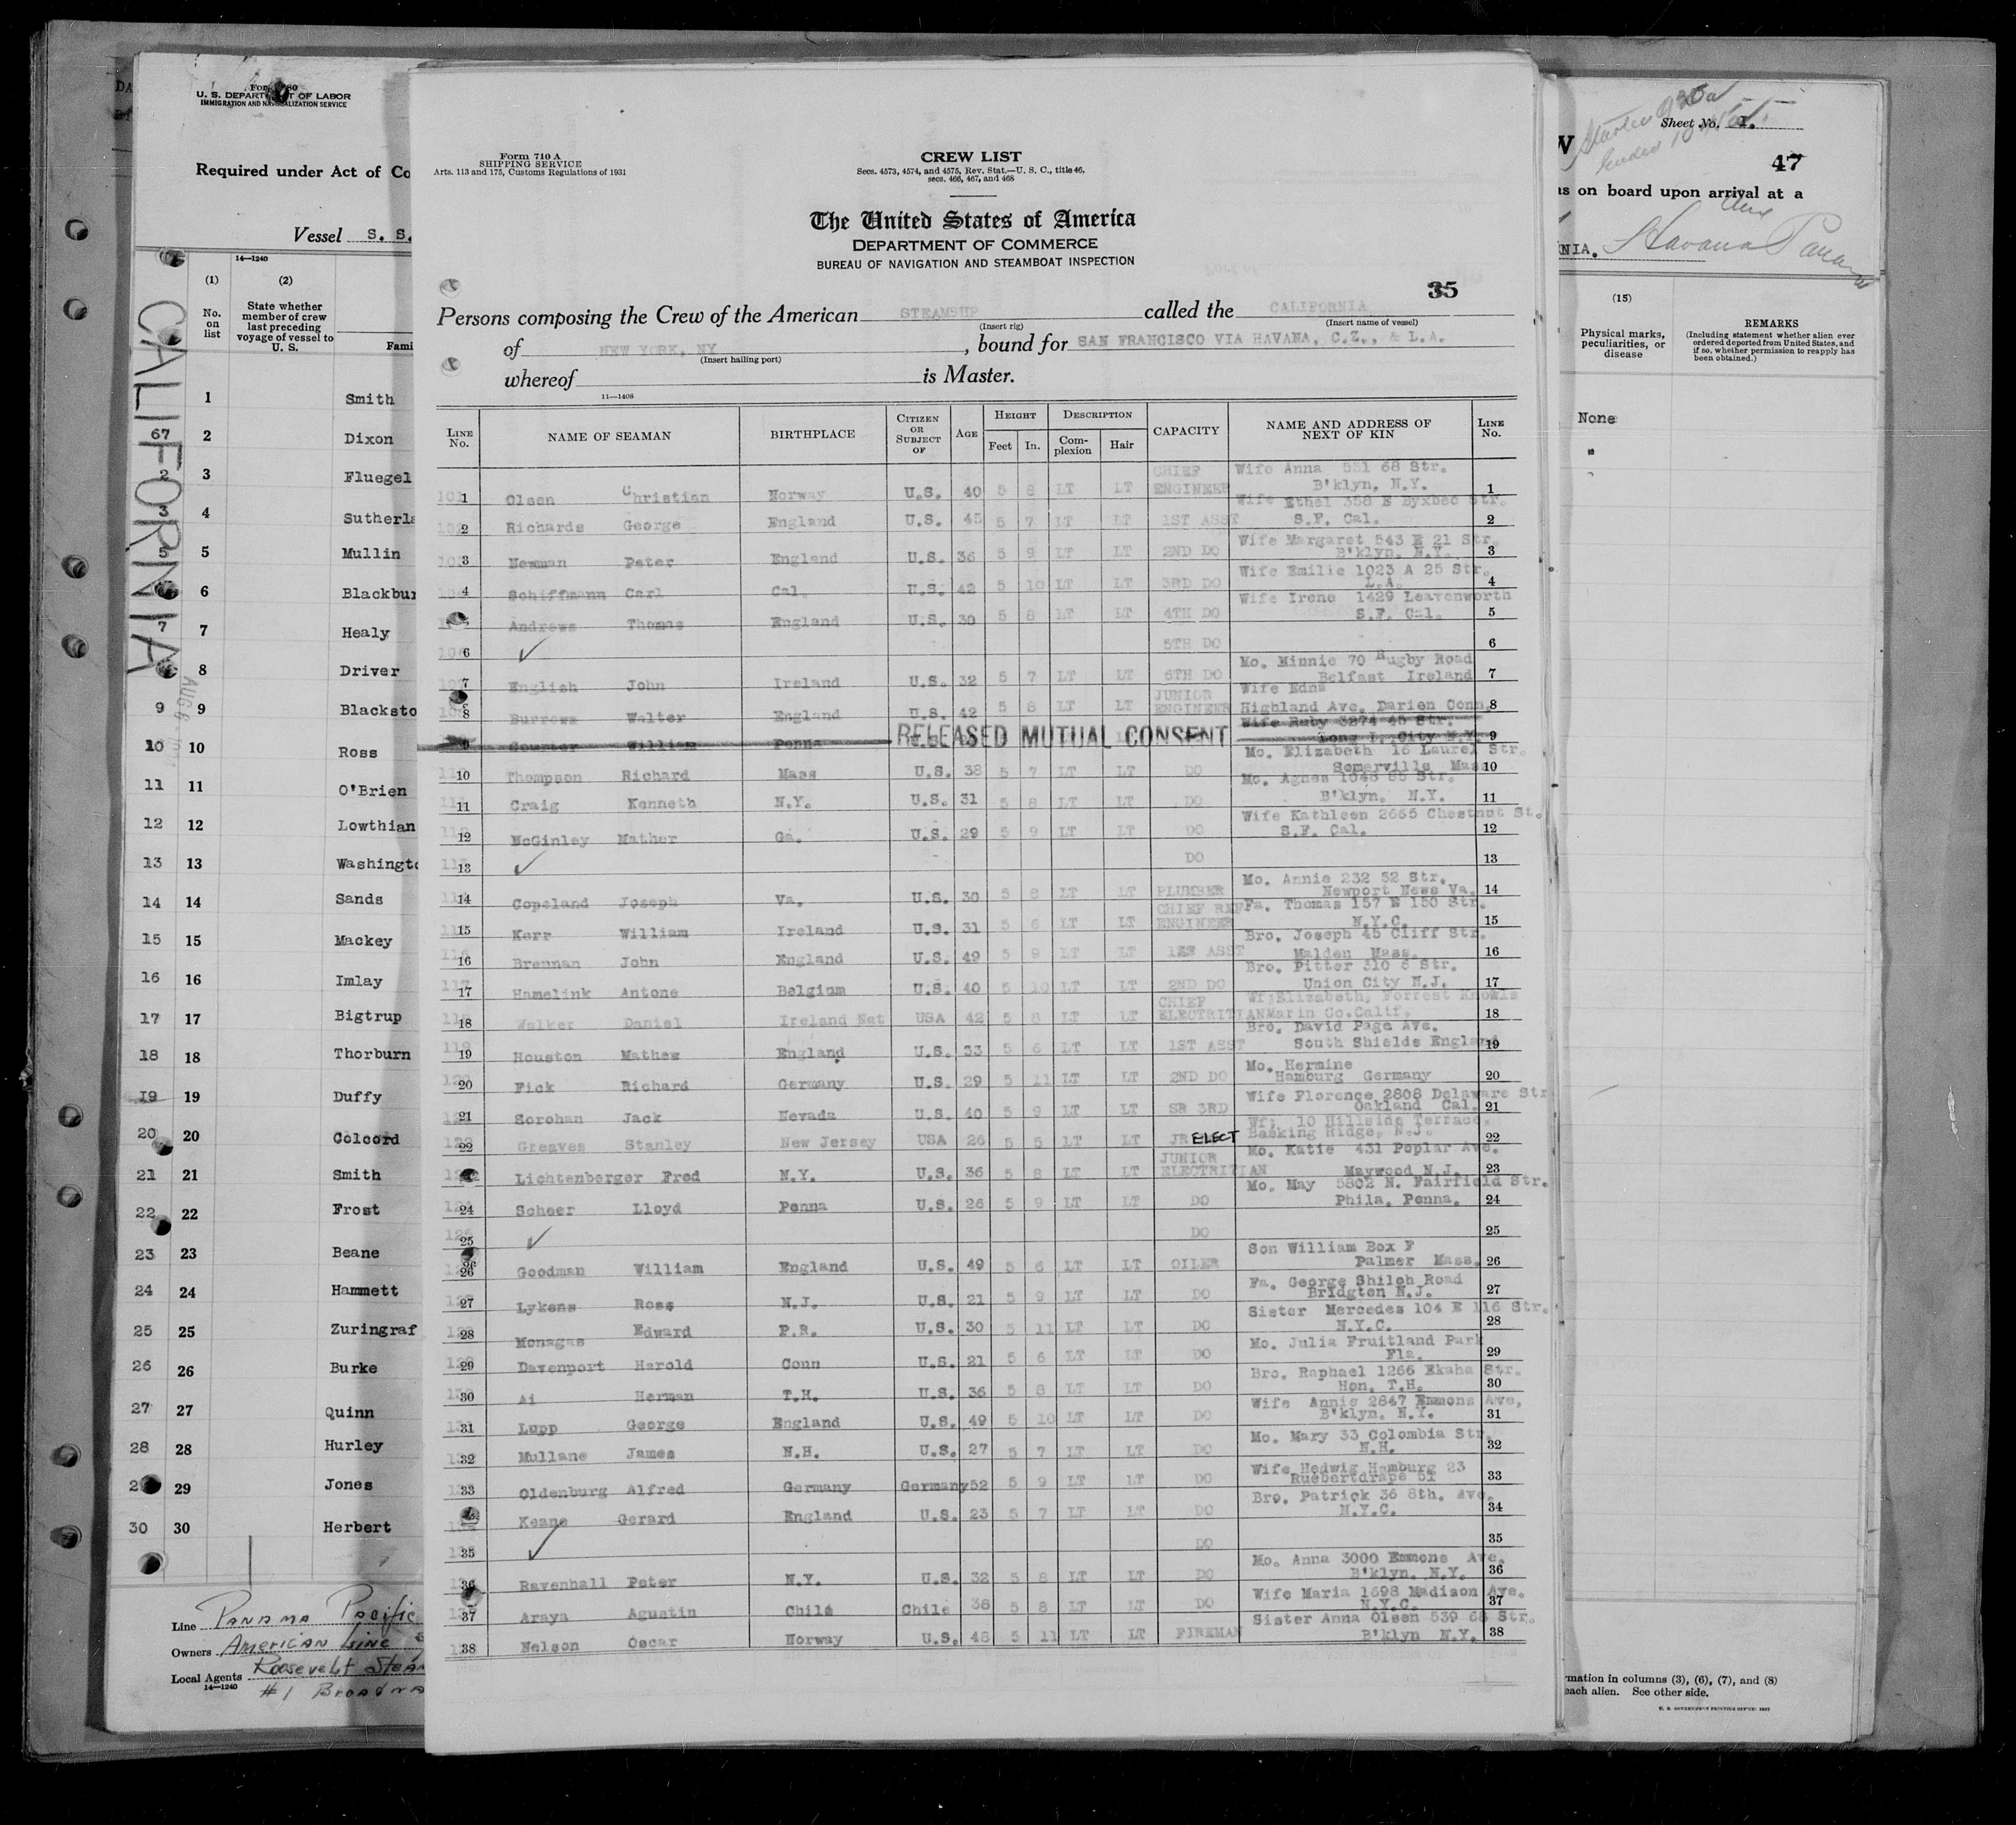 U. S. DEPARTMENT OF LABOR
IMMIGRATION AND NATURALIZATION SERVICE
Required under Act of Co
Vessel S. S.
14—1240
(1)
(2)
No. on list
State whether member of crew last preceding voyage of vessel to U. S.
Fami
CALIFORNIA
1 Smith
67 2 Dixon
2 3 Fluegel
3 4 Sutherla
5 5 Mullin
6 Blackbur
7 7 Healy
8 Driver
9 9 Blacksto
10 10 Ross
11 11 O'Brien
12 12 Lowthian
13 13 Washingto
14 14 Sands
15 15 Mackey
16 16 Imlay
17 17 Bigtrup
18 18 Thorburn
19 19 Duffy
20 20 Colcord
21 21 Smith
22 22 Frost
23 23 Beane
24 24 Hammett
25 25 Zuringraf
26 26 Burke
27 27 Quinn
28 28 Hurley
29 Jones
30 30 Herbert
Line Panama Pacific
Owners American Line
Local Agents Roosevelt Stea
14—1240
#1 Broadwa
Form 710 A
SHIPPING SERVICE
Arts. 113 and 175, Customs Regulations of 1931
CREW LIST
Secs. 4573, 4574, and 4575, Rev. Stat.—U. S. C., title 46,
secs. 466, 467, and 468
The United States of America
DEPARTMENT OF COMMERCE
BUREAU OF NAVIGATION AND STEAMBOAT INSPECTION
35
Persons composing the Crew of the American STEAMSHIP called the CALIFORNIA
(Insert rig) (Insert name of vessel)
of NEW YORK, NY, bound for SAN FRANCISCO VIA HAVANA, C.Z., & L.A.
(Insert hailing port)
whereof is Master.
11—1408
LINE No. NAME OF SEAMAN BIRTHPLACE CITIZEN OR SUBJECT OF AGE HEIGHT Feet In. DESCRIPTION Complexion Hair CAPACITY NAME AND ADDRESS OF NEXT OF KIN LINE No.
1 Olsen Christian Norway U.S. 40 5 8 LT LT CHIEF ENGINEER Wife Anna 531 68 Str. B'klyn, N.Y. 1
2 Richards George England U.S. 45 5 7 LT LT 1ST ASST Wife Ethel 358 E Byxbee Str. S.F. Cal. 2
3 Newman Peter England U.S. 36 5 9 LT LT 2ND DO Wife Margaret 543 E 21 Str. B'klyn. N.Y. 3
4 Schiffmann Carl Cal. U.S. 42 5 10 LT LT 3RD DO Wife Emilie 1023 A 25 Str. L.A. 4
Andrews Thomas England U.S. 30 5 8 LT LT 4TH DO Wife Irene 1429 Leavenworth S.F. Cal. 5
6 ✓ 5TH DO 6
7 English John Ireland U.S. 32 5 7 LT LT 6TH DO Mo. Minnie 70 Rugby Road Belfast Ireland 7
8 Burrows Walter England U.S. 42 5 8 LT LT JUNIOR ENGINEER Wife Edna Highland Ave. Darien Conn. 8
9 Counter William Penna RELEASED MUTUAL CONSENT Wife Ruby 3274 45 Str. Long I. City N.Y. 9
10 Thompson Richard Mass U.S. 38 5 7 LT LT DO Mo. Elizabeth 16 Laurel Str. Somerville Mass 10
11 Craig Kenneth N.Y. U.S. 31 5 8 LT LT DO Mo. Agnes 1048 85 Str. B'klyn. N.Y. 11
12 McGinley Mather Ga. U.S. 29 5 9 LT LT DO Wife Kathleen 2665 Chestnut St. S.F. Cal. 12
13 ✓ DO 13
14 Copeland Joseph Va. U.S. 30 5 8 LT LT PLUMBER Mo. Annie 232 52 Str. Newport News Va. 14
15 Kerr William Ireland U.S. 31 5 6 LT LT CHIEF REF ENGINEER Fa. Thomas 157 E 150 Str. N.Y.C. 15
16 Brennan John England U.S. 49 5 9 LT LT 1ES ASST Bro. Joseph 45 Cliff Str. Malden Mass. 16
17 Hamelink Antone Belgium U.S. 40 5 10 LT LT 2ND DO Bro. Pitter 310 6 Str. Union City N.J. 17
18 Walker Daniel Ireland Nat USA 42 5 8 LT LT CHIEF ELECTRITIAN Wf;Elizabeth, Forrest Knowls Marin Co.Calif. 18
19 Houston Mathew England U.S. 33 5 6 LT LT 1ST ASST Bro. David Page Ave. South Shields England 19
20 Fick Richard Germany U.S. 29 5 11 LT LT 2ND DO Mo. Hermine Hamburg Germany 20
21 Sorohan Jack Nevada U.S. 40 5 9 LT LT SR 3RD Wife Florence 2808 Delaware Str Oakland Cal. 21
22 Greaves Stanley New Jersey USA 26 5 5 LT LT JR ELECT Wf; 10 Hillside Terrace. Basking Ridge, N.J. 22
Lichtenberger Fred N.Y. U.S. 36 5 8 LT LT JUNIOR ELECTRITIAN Mo. Katie 431 Poplar Ave. Maywood N.J. 23
24 Scheer Lloyd Penna U.S. 26 5 9 LT LT DO Mo. May 5802 N. Fairfield Str. Phila. Penna. 24
25 ✓ DO 25
26 Goodman William England U.S. 49 5 6 LT LT OILER Son William Box F Palmer Mass. 26
27 Lykens Ross N.J. U.S. 21 5 9 LT LT DO Fa. George Shiloh Road Bridgton N.J. 27
28 Monagas Edward P.R. U.S. 30 5 11 LT LT DO Sister Mercedes 104 E 116 Str. N.Y.C. 28
29 Davenport Harold Conn U.S. 21 5 6 LT LT DO Mo. Julia Fruitland Park Fla. 29
30 Ai Herman T.H. U.S. 36 5 8 LT LT DO Bro. Raphael 1266 Ekaha Str. Hon. T.H. 30
31 Lupp George England U.S. 49 5 10 LT LT DO Wife Annie 2847 Emmons Ave, B'klyn. N.Y. 31
32 Mullane James N.H. U.S. 27 5 7 LT LT DO Mo. Mary 33 Colombia Str. N.H. 32
33 Oldenburg Alfred Germany Germany 52 5 9 LT LT DO Wife Hedwig Hamburg 23 Ruebertdrape 51 33
Keane Gerard England U.S. 23 5 7 LT LT DO Bro. Patrick 36 8th. Ave. N.Y.C. 34
35 ✓ DO 35
36 Ravenhall Peter N.Y. U.S. 32 5 8 LT LT DO Mo. Anna 3000 Emmons Ave. B'klyn. N.Y. 36
37 Araya Agustin Chile Chile 38 5 8 LT LT DO Wife Maria 1698 Madison Ave. N.Y.C. 37
38 Nelson Oscar Norway U.S. 48 5 11 LT LT FIREMAN Sister Anna Olsen 539 68 Str. B'klyn N.Y. 38
Sheet No. 1.
47
as on board upon arrival at a
NIA. Havana Panama
(15)
Physical marks, peculiarities, or disease
REMARKS
(Including statement whether alien ever ordered deported from United States, and if so, whether permission to reapply has been obtained.)
None
"
rmation in columns (3), (6), (7), and (8)
each alien. See other side.
U. S. GOVERNMENT PRINTING OFFICE